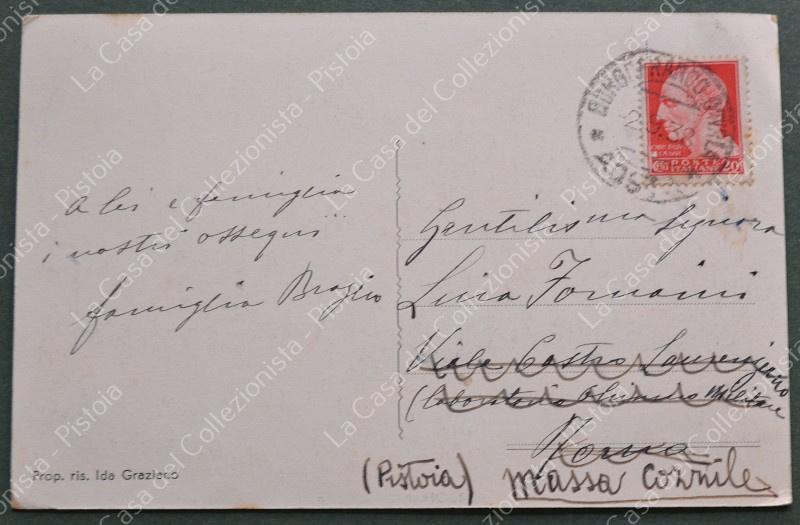 A lei e famiglia
i nostri ossequi
famiglia
Prop. ris. Ida Graziano
POSTE
ITALIANE
20
Gentilissima Signora
Lina Fornaini
Viale Castro Laurenziano
(Laboratorio Chimico Militare
Roma
(Pistoia) Massa Cozzile
La Casa del Collezionista - Pistoia